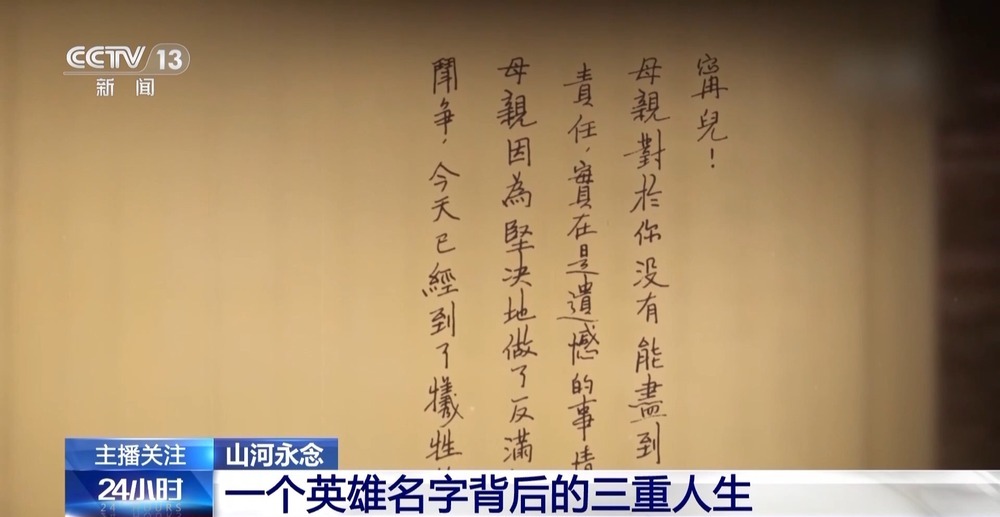 CCTV 13
新闻
甯兒！
母親對於你没有能盡到
責任，實在是遺憾的事情
母親因為堅决地做了反滿
鬪争，今天已經到了犧牲
主播关注
24小时
山河永念
一个英雄名字背后的三重人生